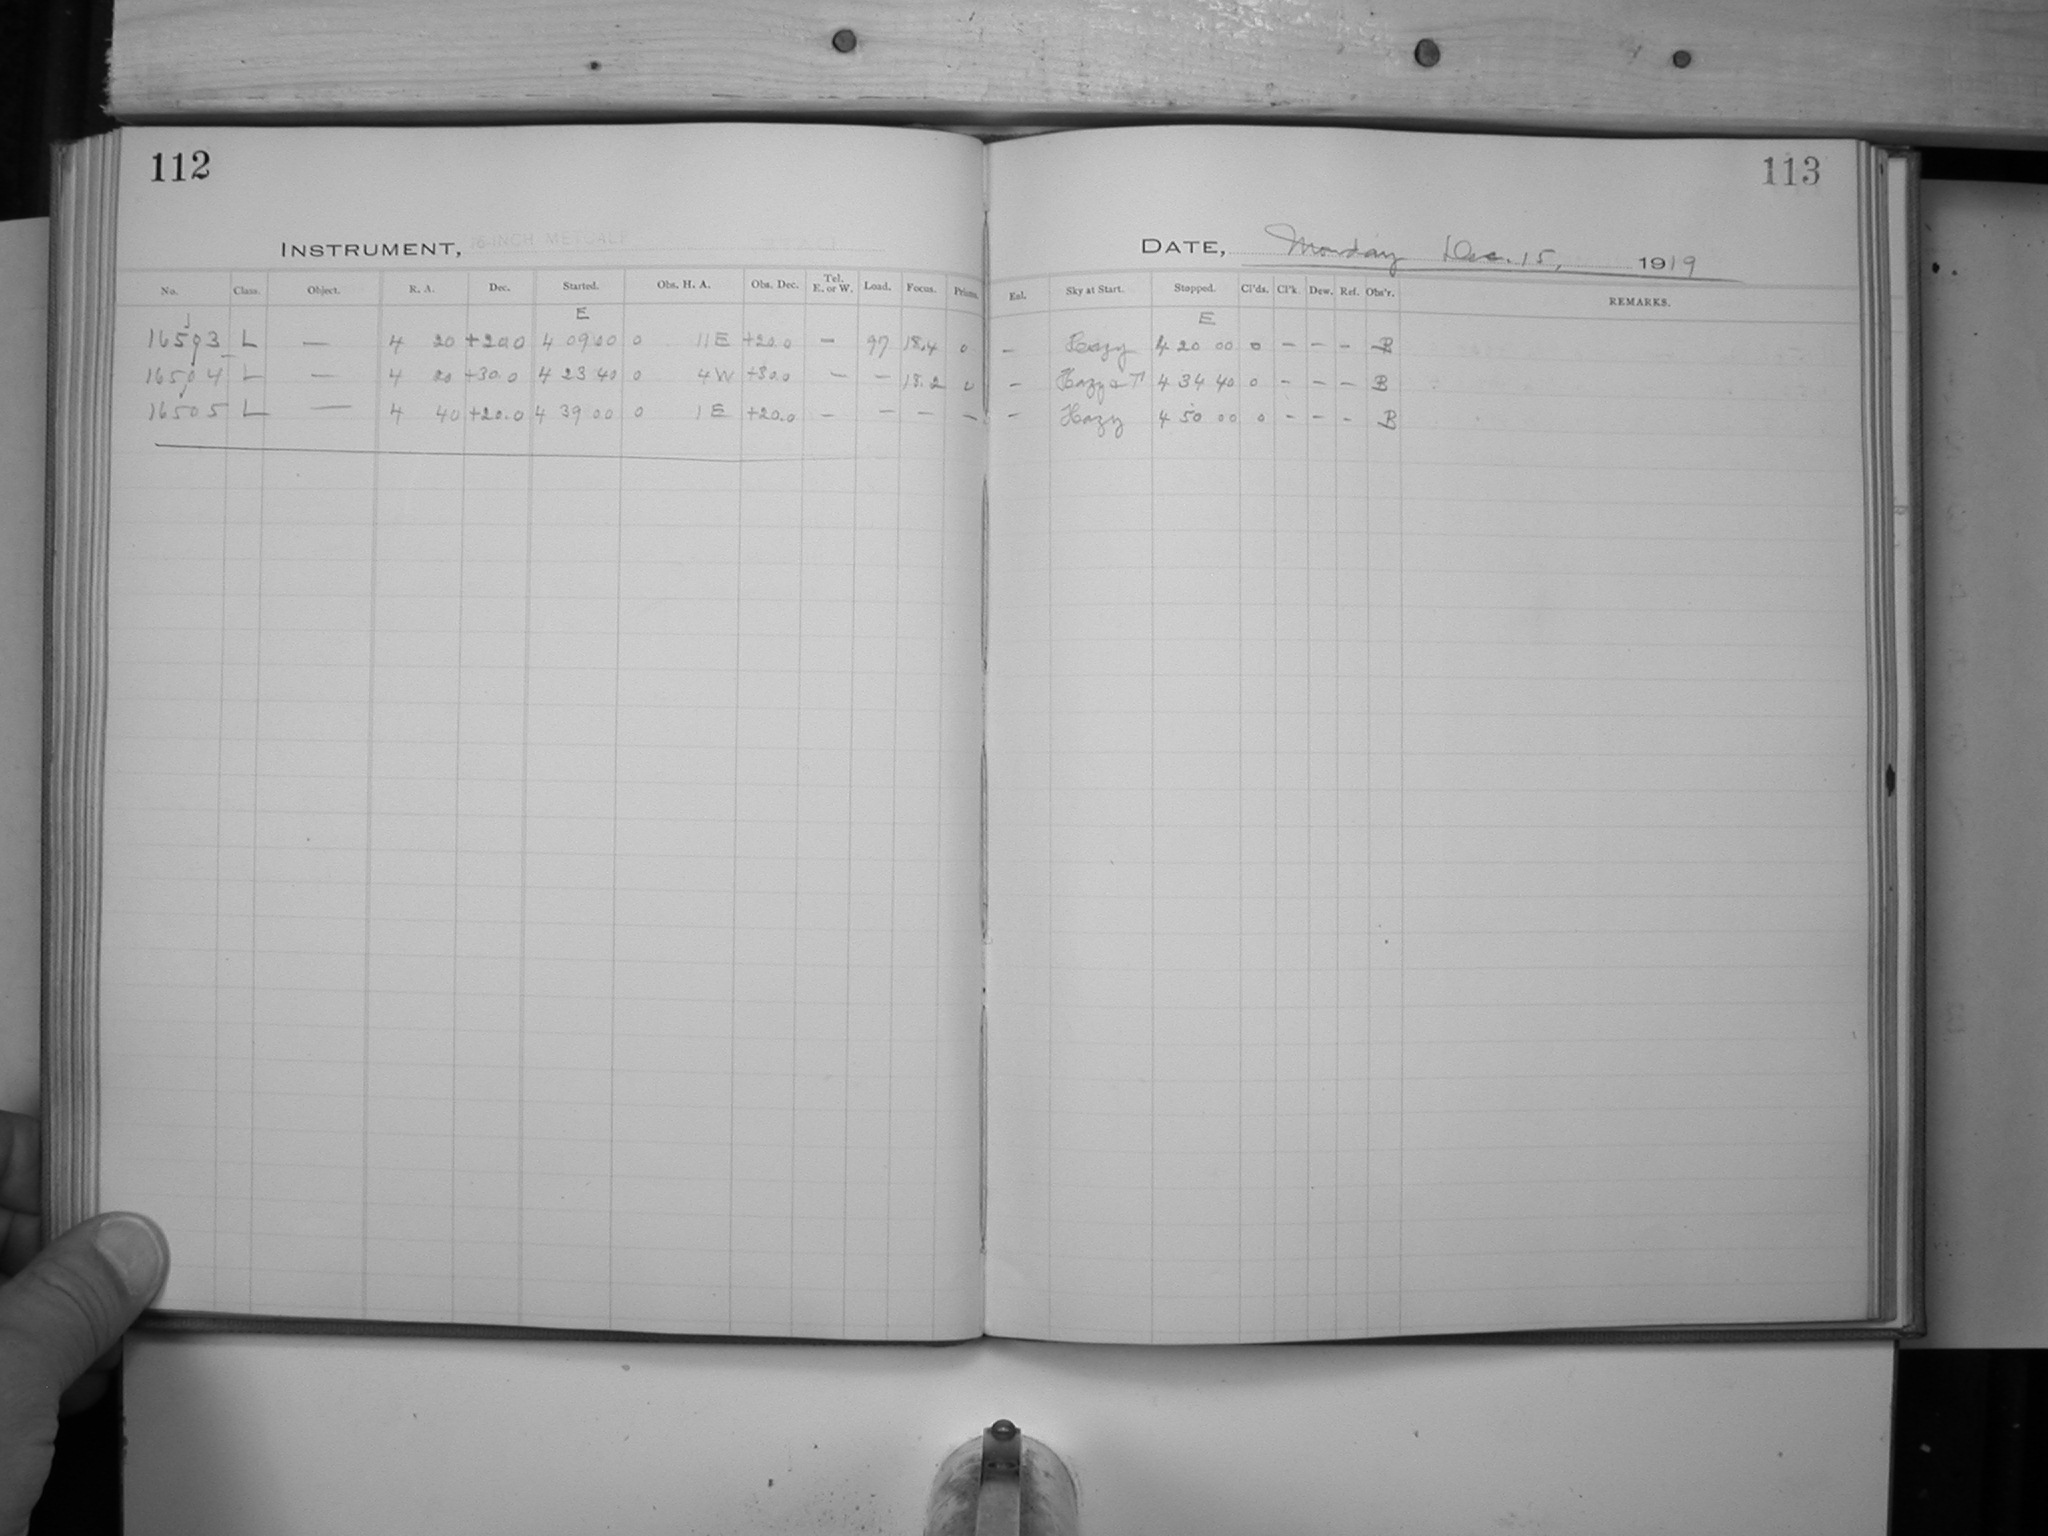 112
113
INSTRUMENT, 16-INCH METCALF
DATE, Monday Dec. 15, 1919
No. Class. Object. R. A. Dec. Started. Obs. H. A. Obs. Dec. Tel. E. or W. Load. Focus. Prisms. Eal. Sky at Start. Stopped. Cl'ds. Cl'k. Dew. Ref. Obs'r. REMARKS.
E E
16503 L — 4 20 +20.0 4 09 00 0 11 E +20.0 — 97 18.4 0 — Hazy 4 20 00 0 — — — B
16504 L — 4 20 +30.0 4 23 40 0 4 W +30.0 — — 18.2 0 — Hazy 4 34 40 0 — — — B
16505 L — 4 40 +20.0 4 39 00 0 1 E +20.0 — — — — — Hazy 4 50 00 0 — — — B